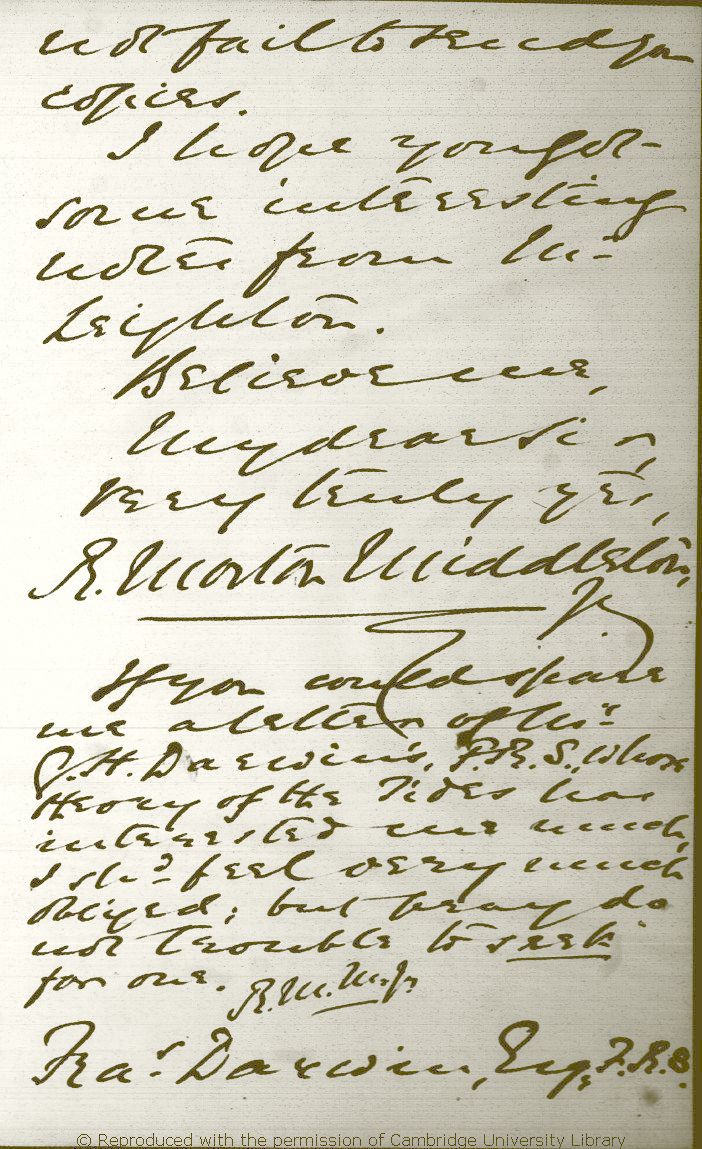 not fail to send you
copies.
I hope you got
some interesting
notes from Mr.
Leighton.
Believe me,
My dear Sir,
very truly yrs,
R. Morton Middleton,
Jr
If you could spare
me a letter of Mr.
G. H. Darwin's, F.R.S., whose
theory of the Tides has
interested me much,
I shd. feel very much
obliged; but pray do
not trouble to seek
for one. R.M.M. Jr.
Fras. Darwin, Esq, F.R.S.
© Reproduced with the permission of Cambridge University Library